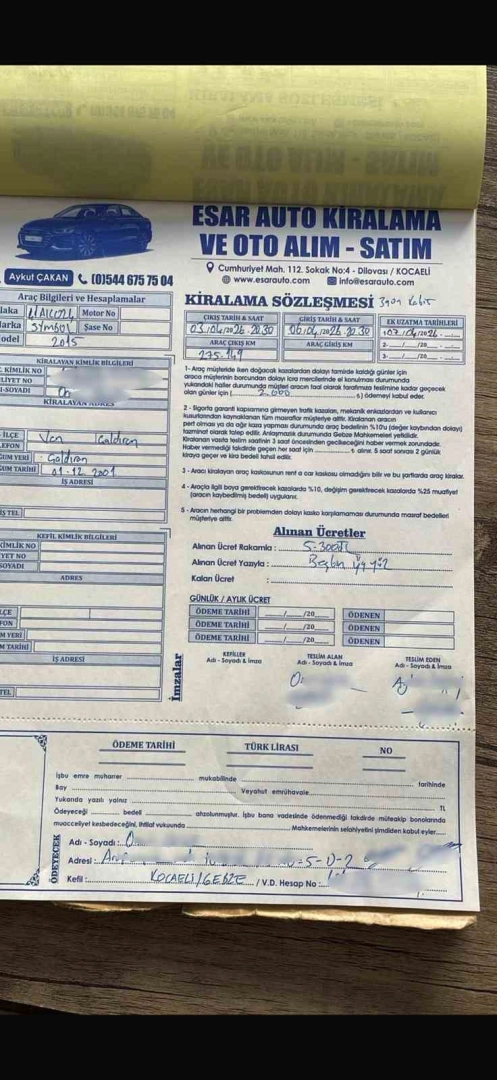 ESAR AUTO KİRALAMA
VE OTO ALIM - SATIM
Cumhuriyet Mah. 112. Sokak No:4 - Dilovası / KOCAELİ
www.esarauto.com info@esarauto.com
Aykut ÇAKAN (0)544 675 75 04
KİRALAMA SÖZLEŞMESİ
Araç Bilgileri ve Hesaplamalar
laka Motor No
arka Symbol Şase No
odel 2015
ÇIKIŞ TARİH & SAAT GİRİŞ TARİH & SAAT EK UZATMA TARİHLERİ
03/04/2026-20.30 06/04/2026-20.30 1-07/04/2026-
ARAÇ ÇIKIŞ KM ARAÇ GİRİŞ KM 2- /20
275.149 3- /20
KİRALAYAN KİMLİK BİLGİLERİ
. KİMLİK NO
LİYET NO
I-SOYADI
KİRALAYAN ADRES
İLÇE Van Çaldıran
EFON
UM YERİ : Çaldıran
UM TARİHİ 01-12-2001
İŞ ADRESİ
İŞ TEL
1- Araç müşteride iken doğacak kazalardan dolayı tamirde kaldığı günler için
araca müşterinin borcundan dolayı icra mercilerinde el konulması durumunda
yukarıdaki haller durumunda müşteri aracın iadi olarak tarafımıza teslimine kadar geçecek
olan günler için ( 2.000 ₺) ödemeyi kabul eder.
2 - Sigorta garanti kapsamına girmeyen trafik kazaları, mekanik enkazlardan ve kullanıcı
kusurlarından kaynaklanan tüm masraflar müşteriye aittir. Kiralanan aracın
pert olması ya da ağır kaza yapması durumunda araç bedelinin %10'u (değer kaybından dolayı)
tazminat olarak talep edilir. Anlaşmazlık durumunda Gebze Mahkemeleri yetkilidir.
Kiralanan vasıta teslim saatinden 3 saat öncesinden gecikeceğini haber vermek zorundadır.
Haber vermediği takdirde geçen her saat için ₺ alınır. 5 saat sonrası 2 günlük
kiraya geçer ve kira bedeli tahsil edilir.
3 - Aracı kiralayan araç kaskosunun rent a car kaskosu olmadığını bilir ve bu şartlarda araç kiralar.
4 - Araçla ilgili boya gerektirecek kazalarda %10, değişim gerektirecek kazalarda %25 muafiyet
(aracın kaybedilmiş bedeli) uygulanır.
5 - Aracın herhangi bir problemden dolayı kasko karşılamaması durumunda masraf bedelleri
müşteriye aittir.
KEFİL KİMLİK BİLGİLERİ
KİMLİK NO
YET NO
SOYADI
ADRES
LÇE
FON
M YERİ
M TARİHİ
İŞ ADRESİ
TEL
Alınan Ücretler
Alınan Ücret Rakamla : 5.300TL
Alınan Ücret Yazıyla : Beşbin üç yüz
Kalan Ücret :
GÜNLÜK / AYLIK ÜCRET
ÖDEME TARİHİ / /20 ÖDENEN
ÖDEME TARİHİ / /20 ÖDENEN
ÖDEME TARİHİ / /20 ÖDENEN
İmzalar
KEFİLLER TESLİM ALAN TESLİM EDEN
Adı - Soyadı & İmza Adı - Soyadı & İmza Adı - Soyadı & İmza
ÖDEME TARİHİ TÜRK LİRASI NO
İşbu emre muharrer mukabilinde tarihinde
Bay Veyahut emrühavale
Yukarıda yazılı yalnız TL
Ödeyeceği bedeli ahzolunmuştur. İşbu bono vadesinde ödenmediği takdirde müteakip bonolarında
muacceliyet kesbedeceğini, ihtilaf vukuunda Mahkemelerinin selahiyetini şimdiden kabul eyler
ÖDETECEK
Adı - Soyadı :
Adresi :
Kefil : KOCAELİ/GEBZE / V.D. Hesap No :